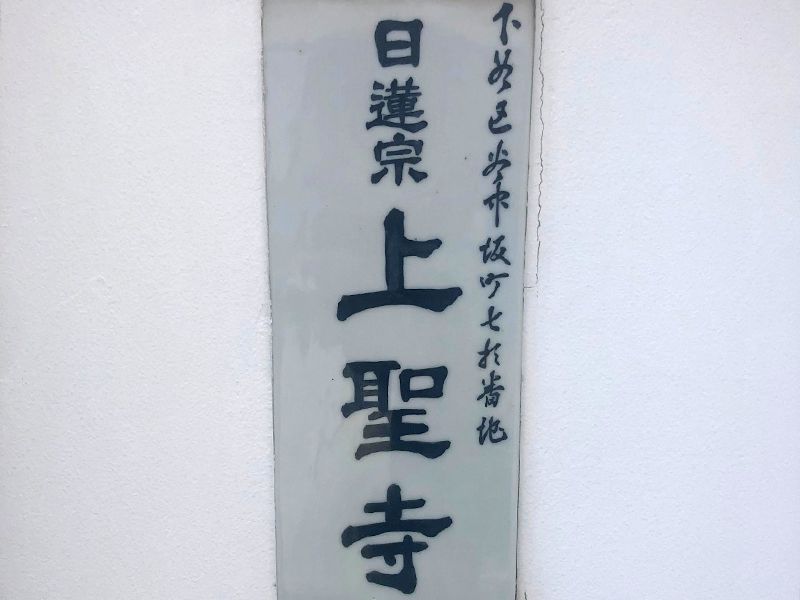 下谷区谷中坂町七拾番地
日蓮宗 上聖寺